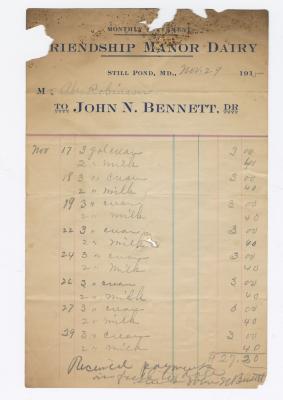 MONTHLY STATEMENT
FRIENDSHIP MANOR DAIRY
STILL POND, MD., Nov. 29 191
M Robinson
TO JOHN N. BENNETT, DR
Nov 17 3 gal cream 3 00
2 " milk 40
18 3 " cream 3 00
2 " milk 40
19 3 " cream 3 00
2 " milk 40
22 3 " cream 3 00
2 " milk 40
24 3 " cream 3 00
2 " milk 40
26 3 " cream 3 00
2 " milk 40
27 3 " cream 3 00
2 " milk 40
29 3 " cream 3 00
2 " milk 40
$27.20
Received payment
John N Bennett